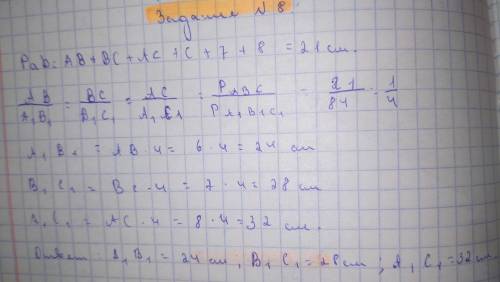 Задание № 8
Pab: AB + BC + AC + C + 7 + 8 = 21 см.
AB/A₁B₁ = BC/B₁C₁ = AC/A₁C₁ = PABC/PA₁B₁C₁ = 21/84 = 1/4
A₁B₁ = AB · 4 = 6 · 4 = 24 см
B₁C₁ = BC · 4 = 7 · 4 = 28 см
A₁C₁ = AC · 4 = 8 · 4 = 32 см.
Ответ: A₁B₁ = 24 см; B₁C₁ = 28 см; A₁C₁ = 32 см.